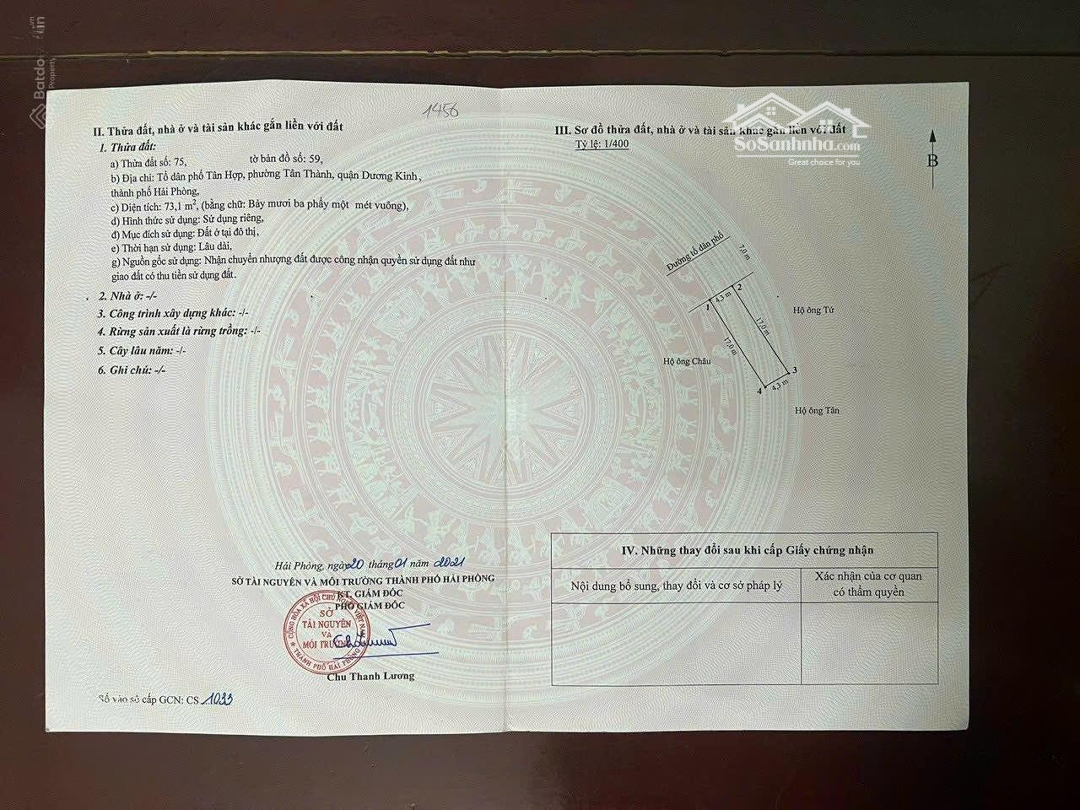 1456
II. Thửa đất, nhà ở và tài sản khác gắn liền với đất
1. Thửa đất:
a) Thửa đất số: 75, tờ bản đồ số: 59,
b) Địa chỉ: Tổ dân phố Tân Hợp, phường Tân Thành, quận Dương Kinh,
thành phố Hải Phòng,
c) Diện tích: 73,1 m², (bằng chữ: Bảy mươi ba phẩy một mét vuông),
d) Hình thức sử dụng: Sử dụng riêng,
đ) Mục đích sử dụng: Đất ở tại đô thị,
e) Thời hạn sử dụng: Lâu dài,
g) Nguồn gốc sử dụng: Nhận chuyển nhượng đất được công nhận quyền sử dụng đất như
giao đất có thu tiền sử dụng đất.
2. Nhà ở: -/-
3. Công trình xây dựng khác: -/-
4. Rừng sản xuất là rừng trồng: -/-
5. Cây lâu năm: -/-
6. Ghi chú: -/-
Hải Phòng, ngày 20 tháng 01 năm 2021
SỞ TÀI NGUYÊN VÀ MÔI TRƯỜNG THÀNH PHỐ HẢI PHÒNG
KT. GIÁM ĐỐC
PHÓ GIÁM ĐỐC
CỘNG HÒA XÃ HỘI CHỦ NGHĨA VIỆT NAM
SỞ
TÀI NGUYÊN
VÀ
MÔI TRƯỜNG
THÀNH PHỐ HẢI PHÒNG
Chu Thanh Lương
Số vào sổ cấp GCN: CS 1033
III. Sơ đồ thửa đất, nhà ở và tài sản khác gắn liền với đất
Tỷ lệ: 1/400
SoSanhnha.com
Great choice for you
B
Đường tổ dân phố
7,0 m
1
4,3 m
2
17,0 m
17,0 m
Hộ ông Tứ
Hộ ông Châu
3
4
4,3 m
Hộ ông Tân
IV. Những thay đổi sau khi cấp Giấy chứng nhận
Nội dung bổ sung, thay đổi và cơ sở pháp lý
Xác nhận của cơ quan
có thẩm quyền